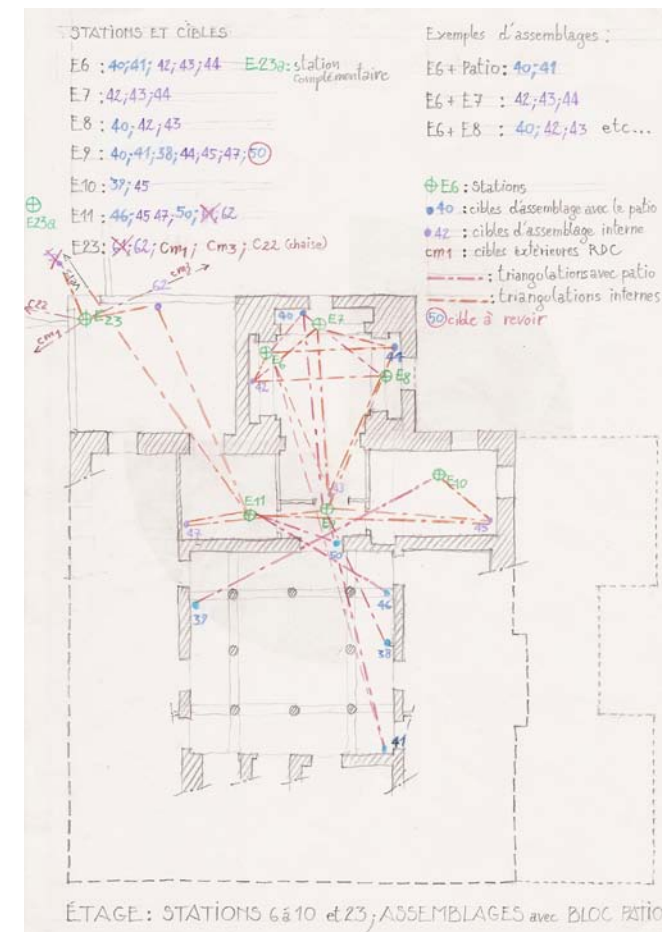 STATIONS ET CIBLES
E6 : 40; 41; 42; 43; 44
E23a: station complémentaire
E7 : 42; 43; 44
E8 : 40; 42; 43
E9 : 40; 41; 38; 44; 45; 47; 50
E10 : 39; 45
E11 : 46; 45 47; 50; 62
E23: 62; Cm1; Cm3; C22 (chaise)
Exemples d'assemblages :
E6 + Patio: 40; 41
E6 + E7 : 42; 43; 44
E6 + E8 : 40; 42; 43 etc...
E6 : Stations
40 : cibles d'assemblage avec le patio
42 : cibles d'assemblage interne
cm1 : cibles extérieures RDC
: triangulations avec patio
: triangulations internes
50 cible à revoir
E23a
62
cm3
C22
E23
cm1
40
E7
E6
44
42
E8
43
E10
E11
47
50
45
39
46
38
41
ÉTAGE: STATIONS 6 à 10 et 23; ASSEMBLAGES avec BLOC PATIO